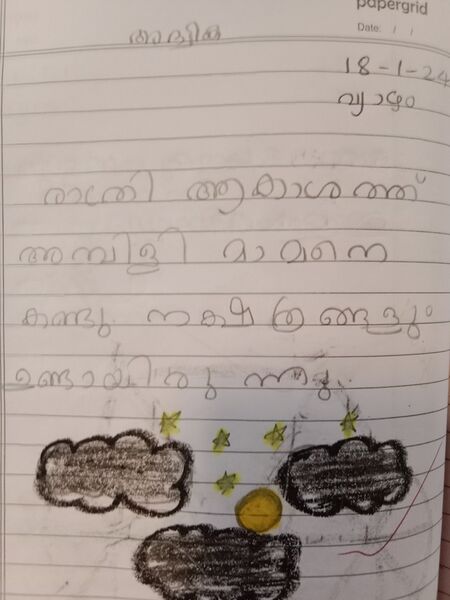 papergrid
Date: / /
18-1-24
വ്യാഴം
രാത്രി ആകാശത്ത്
അമ്പിളി മാമനെ
കണ്ടു നക്ഷത്രങ്ങളും
ഉണ്ടായിരുന്നു.